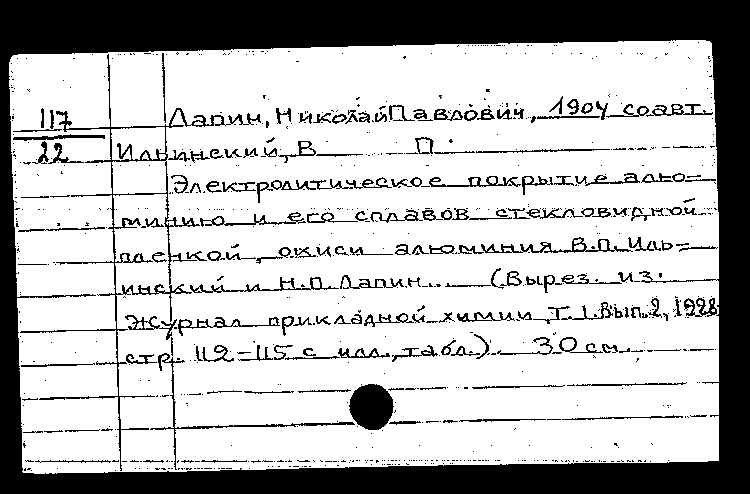 117 Лапин, Николай Павлович, 1904 соавт.
22 Ильинский, В П.
Электролитическое покрытие алю=
минию и его сплавов стекловидной
пленкой, окиси алюминия В.П. Иль=
инский и Н.П. Лапин... (Вырез. из.
Журнал прикладной химии, т. 1. Вып. 2, 1928
стр. 112-115 с илл., табл.). 30 см.